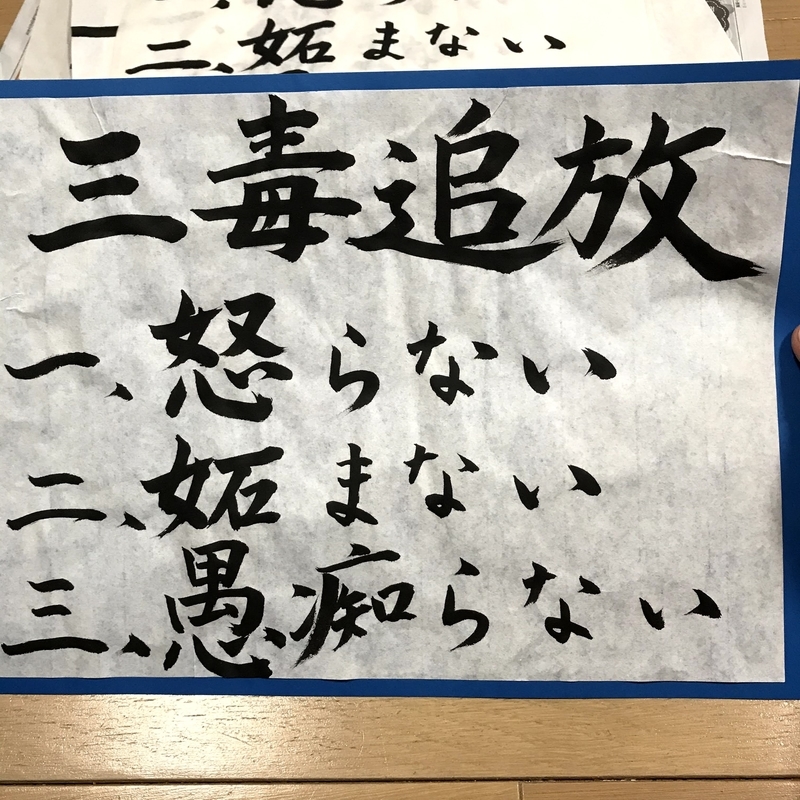 二、妬まない
三毒追放
一、怒らない
二、妬まない
三、愚痴らない